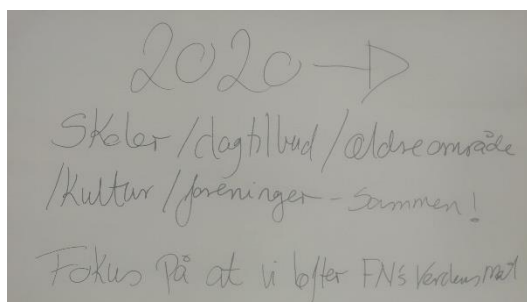 2020 →
Skoler/dagtilbud/ældreområde
/Kultur/foreninger - Sammen!
Fokus på at vi løfter FN's Verdensmål